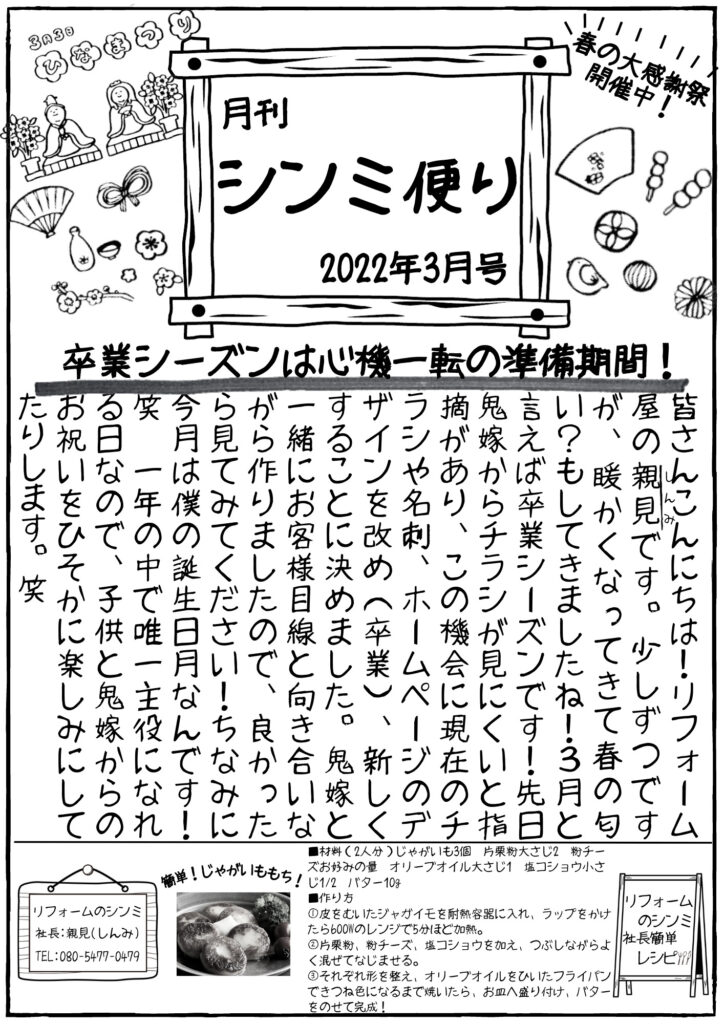 3月3日
ひなまつり
春の大感謝祭
開催中！
月刊
シンミ便り
2022年3月号
卒業シーズンは心機一転の準備期間！
皆さんこんにちは！リフォーム
屋の親見です。少しずつです
しんみ
が、暖かくなってきて春の匂
い？もしてきましたね！３月と
言えば卒業シーズンです！先日
鬼嫁からチラシが見にくいと指
摘があり、この機会に現在のチ
ラシや名刺、ホームページのデ
ザインを改め（卒業）、新しく
することに決めました。鬼嫁と
一緒にお客様目線と向き合いな
がら作りましたので、良かった
ら見てみてください！ちなみに
今月は僕の誕生日月なんです！
笑　一年の中で唯一主役になれ
る日なので、子供と鬼嫁からの
お祝いをひそかに楽しみにして
たりします。笑
リフォームのシンミ
社長：親見(しんみ)
TEL：080-5477-0479
簡単！じゃがいももち！
■材料（2人分）じゃがいも3個　片栗粉大さじ2　粉チー
ズお好みの量　オリーブオイル大さじ1　塩コショウ小さ
じ1/2　バター10g
■作り方
①皮をむいたジャガイモを耐熱容器に入れ、ラップをかけ
たら600Wのレンジで5分ほど加熱。
②片栗粉、粉チーズ、塩コショウを加え、つぶしながらよ
く混ぜてなじませる。
③それぞれ形を整え、オリーブオイルをひいたフライパン
できつね色になるまで焼いたら、お皿へ盛り付け、バター
をのせて完成！
リフォーム
のシンミ
社長簡単
レシピ!!!